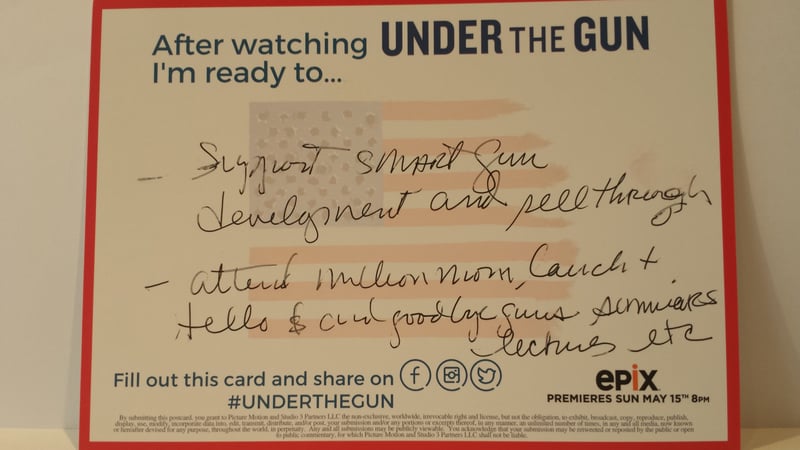 After watching UNDER THE GUN
I'm ready to...
- Support smart gun
development and sell through
- attend million mom, &
Hello & and goodbye guns seminars
lectures etc
Fill out this card and share on
#UNDERTHEGUN
epix
PREMIERES SUN MAY 15TH 8PM
By submitting this postcard, you grant to Picture Motion and Studio 3 Partners LLC the non-exclusive, worldwide, irrevocable right and license, but not the obligation, to exhibit, broadcast, copy, reproduce, publish,
display, use, modify, incorporate data into, edit, transmit, distribute, and/or post, your submission and/or any portions or excerpts thereof, in any manner, an unlimited number of times, in any and all media, now known
or hereafter devised for any purpose, throughout the world, in perpetuity. Any and all submissions may be publicly viewable. You acknowledge that your submission may be retweeted or reposted by the public or open
to public commentary, for which Picture Motion and Studio 3 Partners LLC shall not be liable.